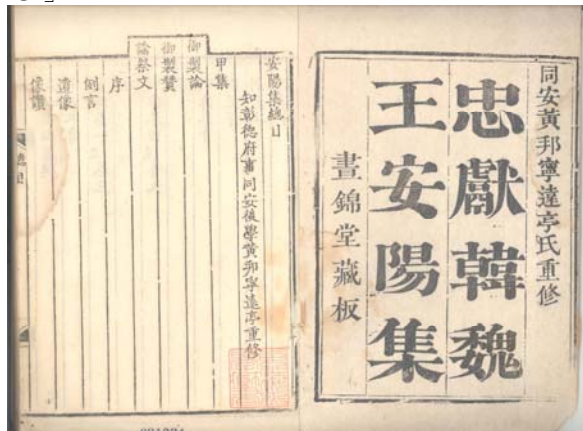 同安黃邦寧遠亭氏重修
忠獻韓魏
王安陽集
晝錦堂藏板
安陽集總目
知彰德府事同安後學黃邦寧遠亭重修
甲集
御製論
御製贊
諭祭文
序
例言
遺像
像讚